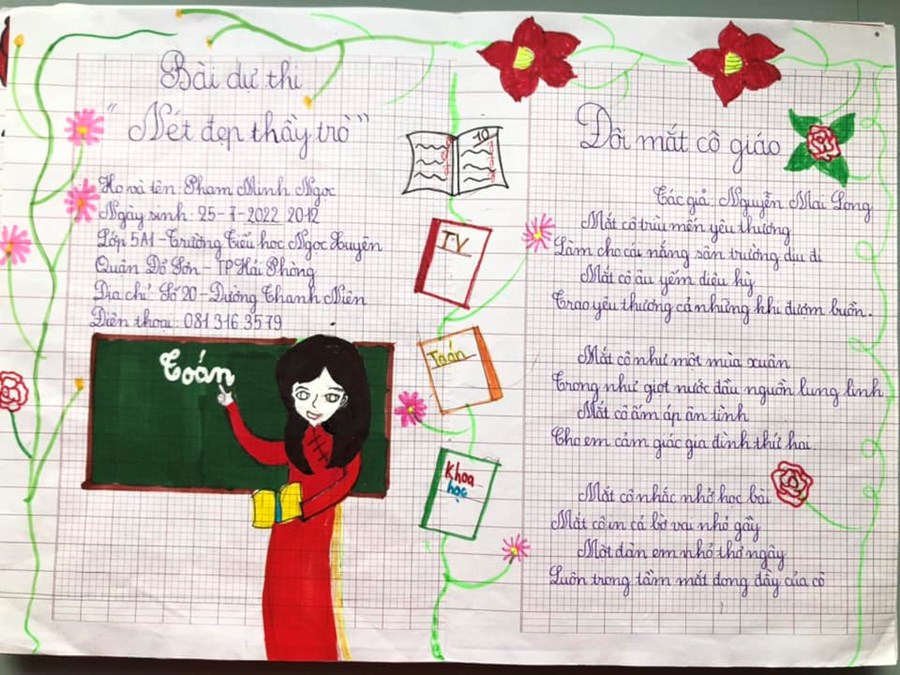 Bài dự thi
"Nét đẹp thầy trò"
Họ và tên: Phạm Minh Ngọc
Ngày sinh: 25-7-2022 2012
Lớp 5A1-Trường Tiểu học Ngọc Xuyên
Quận Đồ Sơn - TP Hải Phòng
Địa chỉ: Số 20-Đường Thanh Niên
Điện thoại: 081 316 3579
Toán
10
TV
Toán
Khoa
học
Đôi mắt cô giáo
Tác giả: Nguyễn Mai Long
Mắt cô trìu mến yêu thương
Làm cho cái nắng sân trường dịu đi
Mắt cô âu yếm diệu kỳ
Trao yêu thương cả những khi đượm buồn.
Mắt cô như một mùa xuân
Trong như giọt nước đầu nguồn lung linh
Mắt cô ấm áp ân tình
Cho em cảm giác gia đình thứ hai
Mắt cô nhắc nhở học bài
Mắt cô in cả bờ vai nhỏ gầy
Một đàn em nhỏ thơ ngây
Luôn trong tầm mắt đong đầy của cô